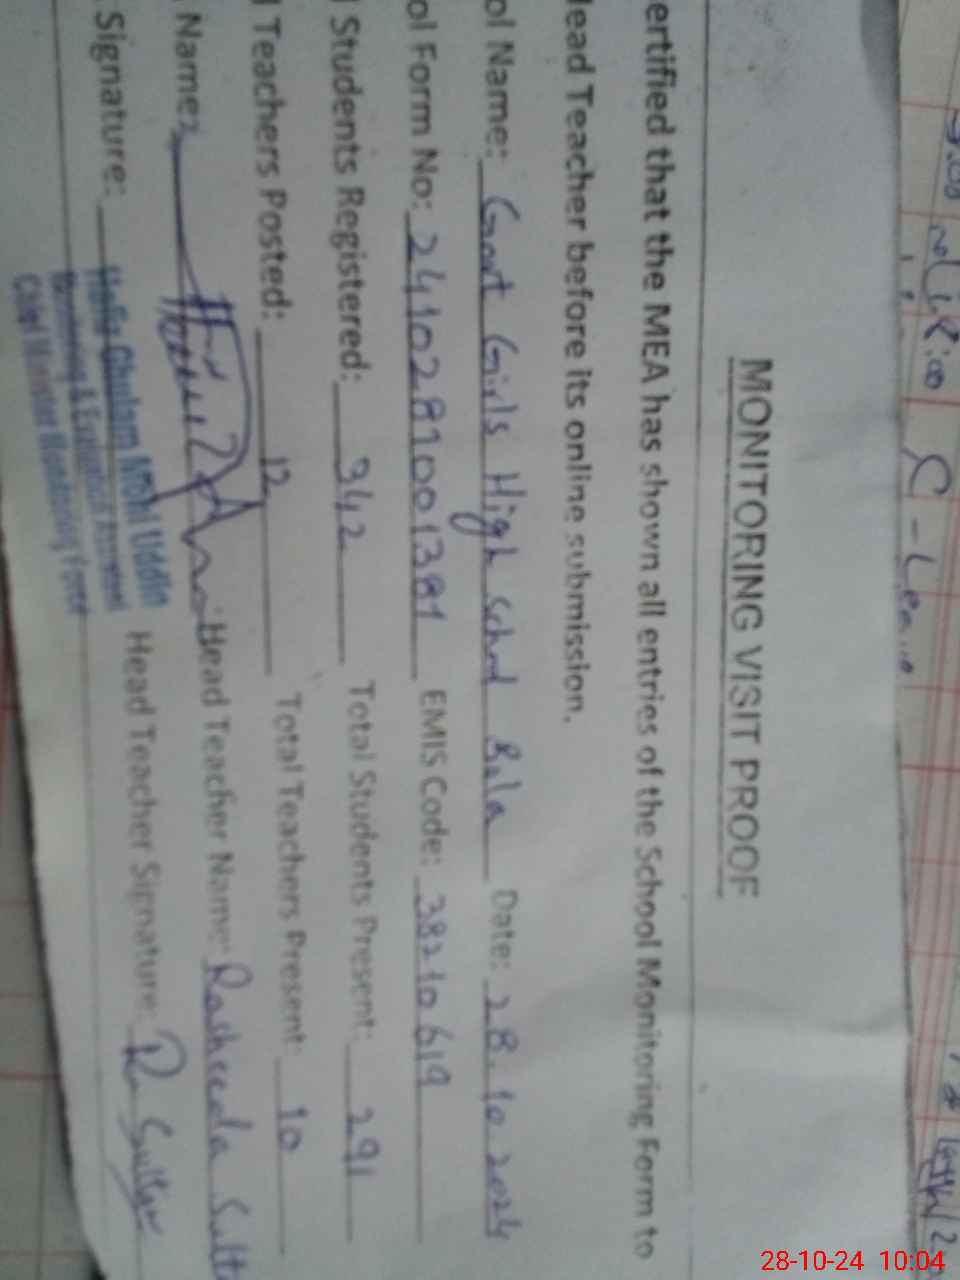 MONITORING VISIT PROOF
ertified that the MEA has shown all entries of the School Monitoring Form to
lead Teacher before its online submission.
ol Name: Govt Girls High school Bela Date: 28.10.2024
ol Form No: 2410281001381 EMIS Code: 38210619
l Students Registered: 342 Total Students Present: 291
l Teachers Posted: 12 Total Teachers Present: 10
Name: Head Teacher Name: Rasheeda Sult
Signature: Head Teacher Signature: R. Sultan
Hafiz Ghulam Mohi Uddin
Monitoring & Evaluation Assistant
Chief Minister Monitoring Force
C-Leave
28-10-24 10:04